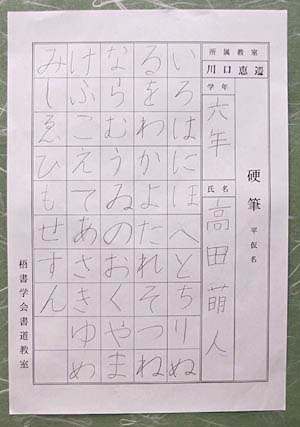 硬筆 平仮名
所属教室
川口
学年
六年
氏名
高田萌人
いろはにほへとちりぬ
るをわかよたれそつね
ならむうゐのおくやま
けふこえてあさきゆめ
みしゑひもせすん
梧書学会書道教室